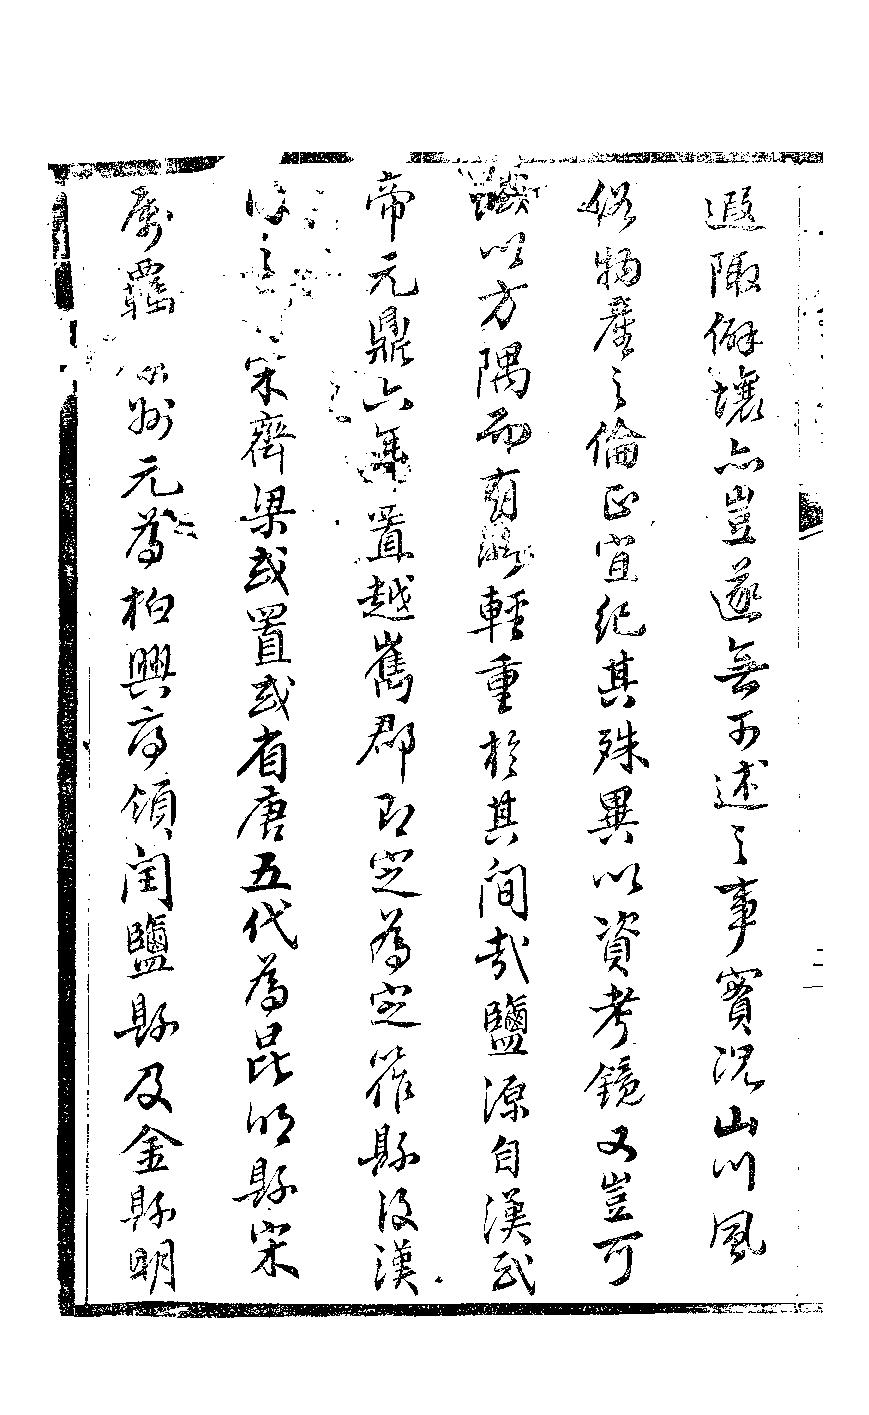 遐陬僻壤亦豈遂無可述之事實況山川風
俗物產之倫正宜紀其殊異以資考鏡又豈可
以方隅而有輕重於其間哉鹽源自漢武
帝元鼎六年置越嶲郡即定為定筰縣後漢
因之宋齊梁或置或省唐五代為昆明縣宋
屬羈州元為柏興府領閏鹽縣及金縣明